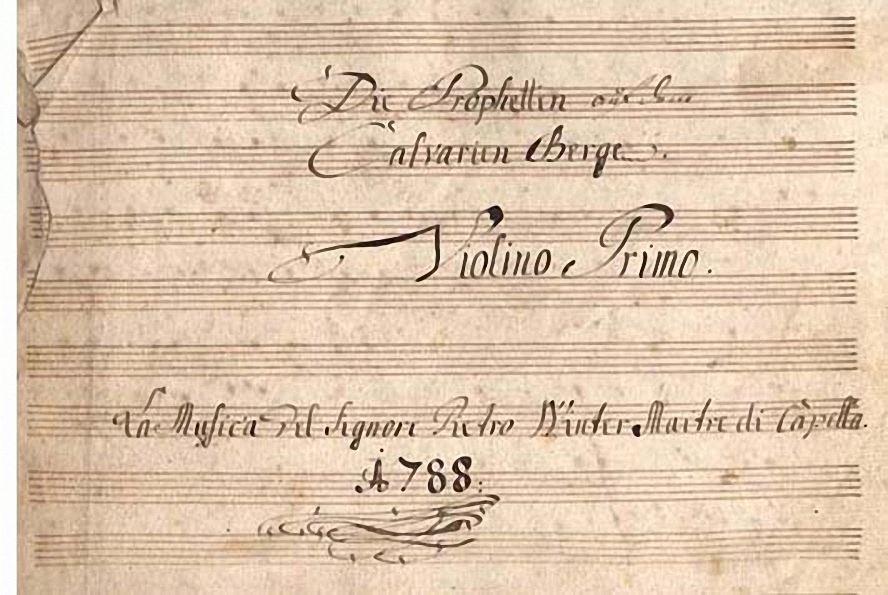 Die Prophettin auf dem
Calvarien Berge.
Violino Primo.
La Musica del Signore Pietro Winter Maitre di Capella.
A 788.